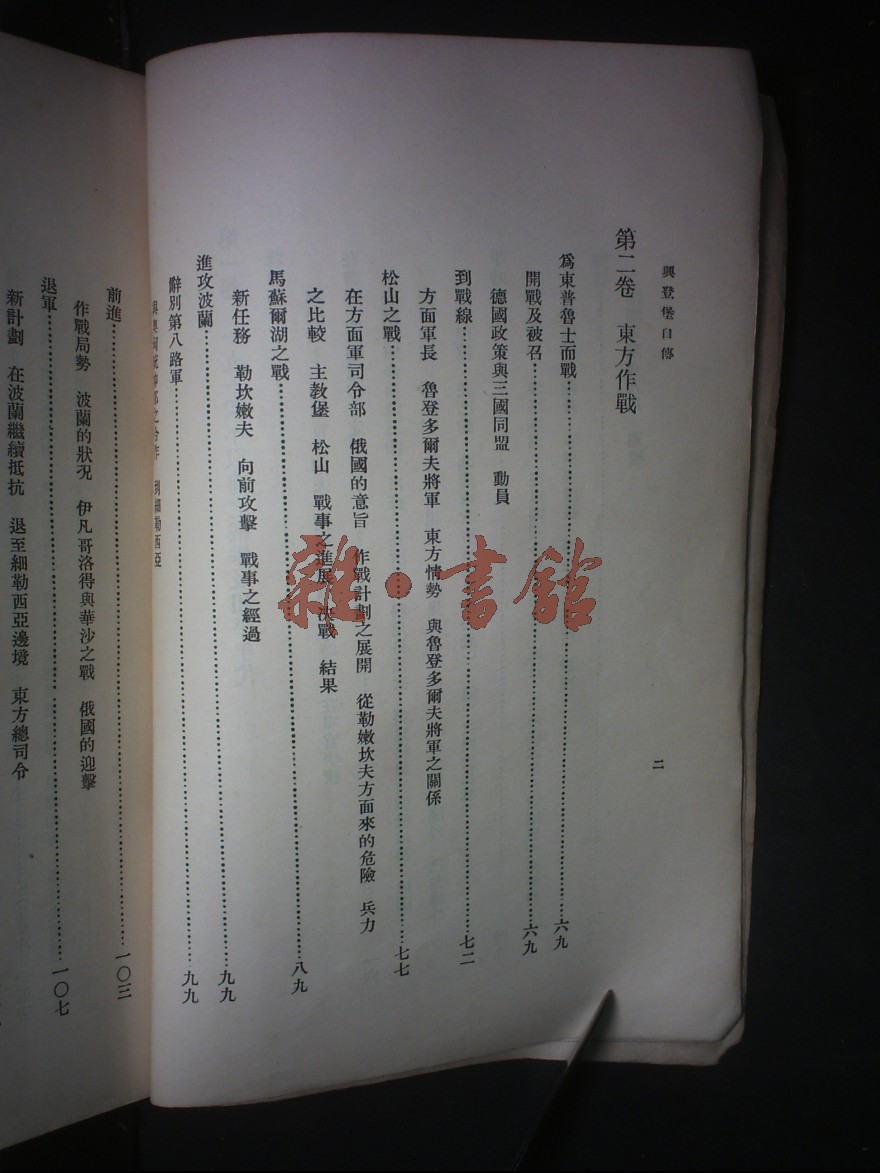 興登堡自傳
二
第二卷 東方作戰
爲東普魯士而戰……六九
開戰及被召……六九
德國政策與三國同盟 動員
到戰線……七二
方面軍長 魯登多爾夫將軍 東方情勢 與魯登多爾夫將軍之關係
松山之戰……七七
在方面軍司令部 俄國的意旨 作戰計劃之展開 從勒嫩坎夫方面來的危險 兵力
之比較 主教堡 松山 戰事之進展 決戰 結果
馬蘇爾湖之戰……八九
新任務 勒坎嫩夫 向前攻擊 戰事之經過
進攻波蘭……九九
辭別第八路軍……九九
之合作 到細勒西亞
前進……一〇三
作戰局勢 波蘭的狀況 伊凡哥洛得與華沙之戰 俄國的迎擊
退軍……一〇七
新計劃 在波蘭繼續抵抗 退至細勒西亞邊境 東方總司令
雜·書館